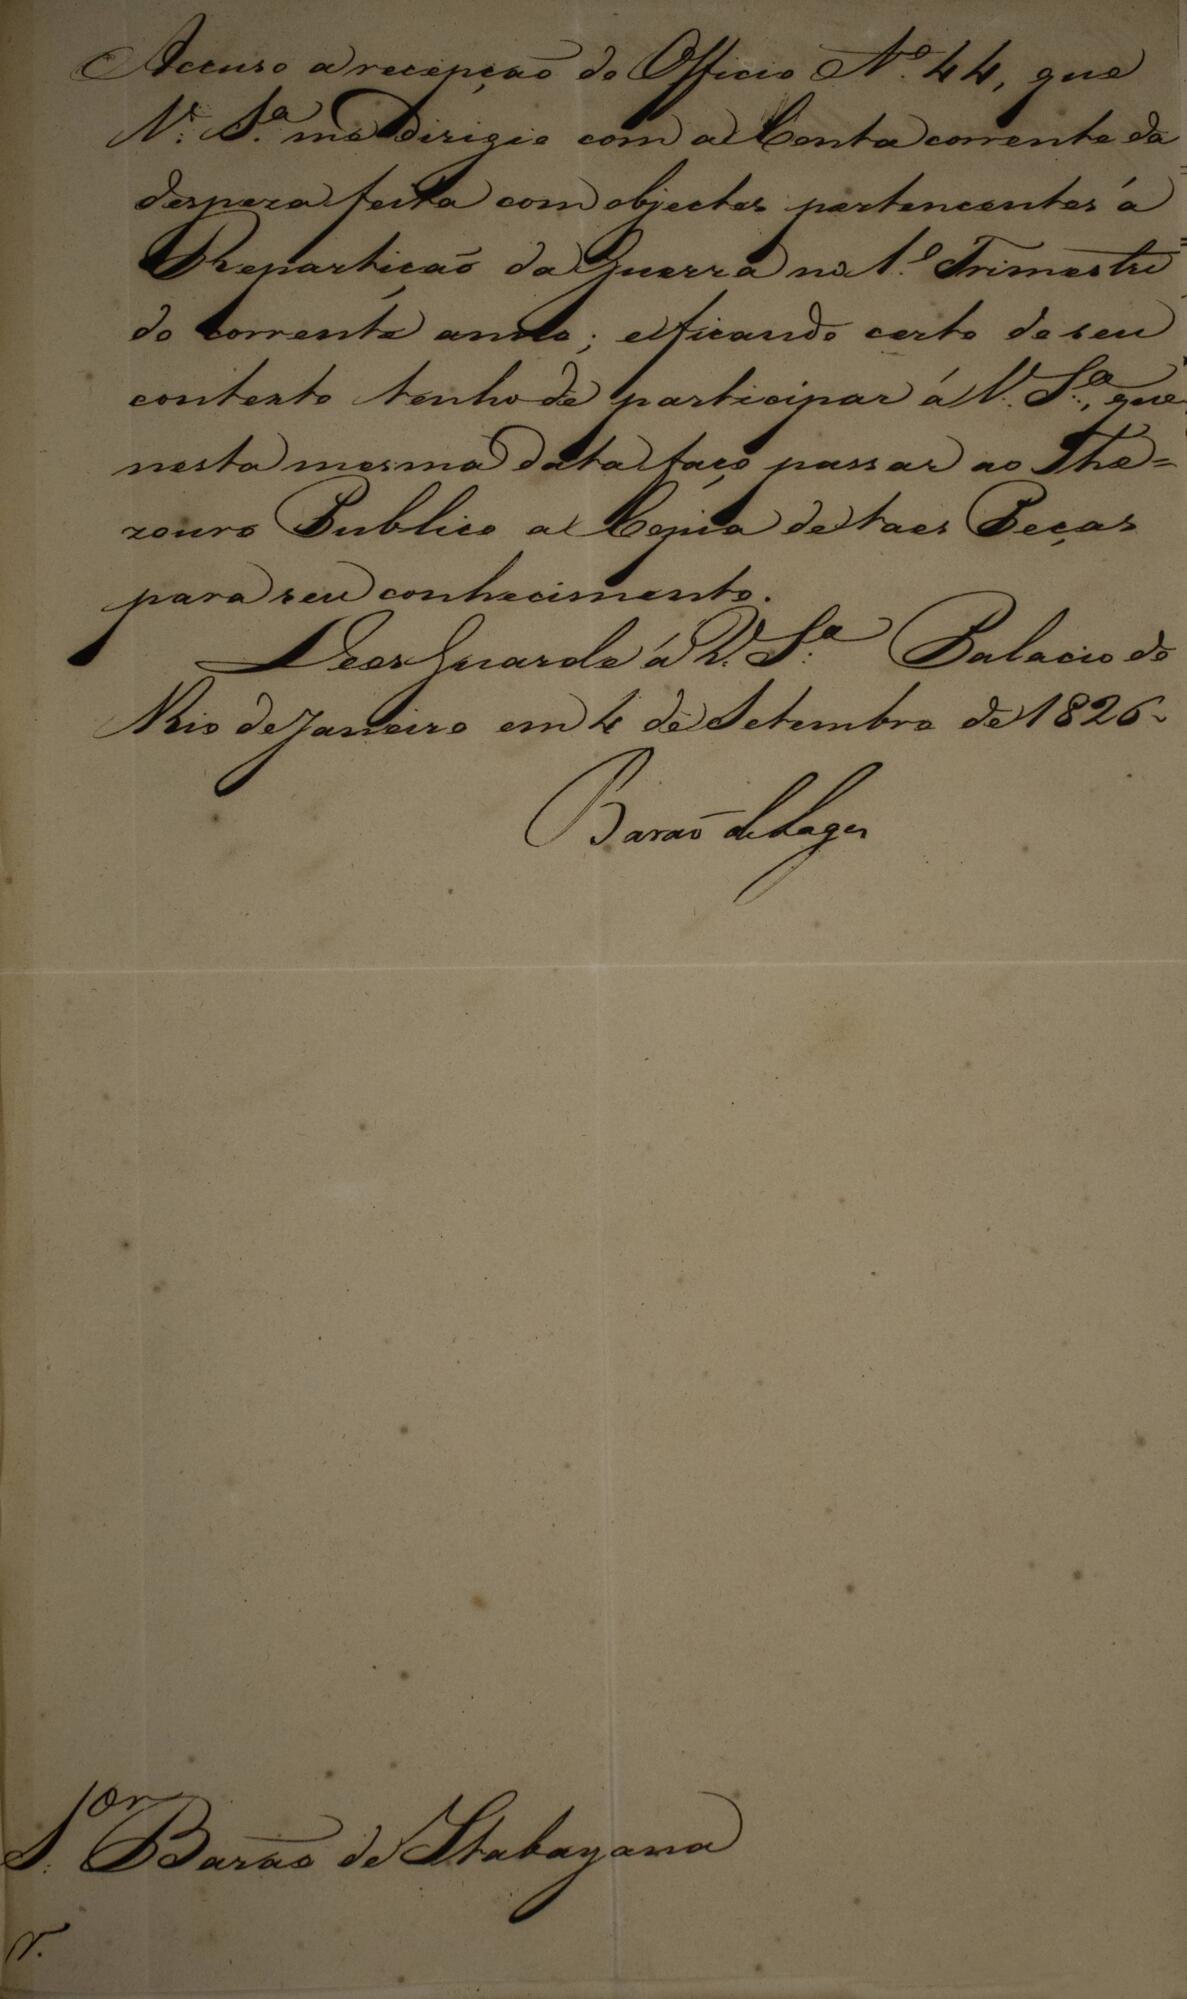 Accuso a recepção do Officio Nº. 44, que
V. S.ª me dirigio com a Conta corrente da
despeza feita com objectos pertencentes á
Repartição da Guerra no 1.º Trimestre
do corrente anno; e ficando certo de seu
contexto tenho de participar á V. S.ª, que
nesta mesma data faço passar ao The=
zouro Publico a Copia de taes Peças
para seu conhecimento.
Deos Guarde á V. S.ª Palacio do
Rio de Janeiro em 4 de Setembro de 1826
Barão de Lages
S.or Barão de Itabayana